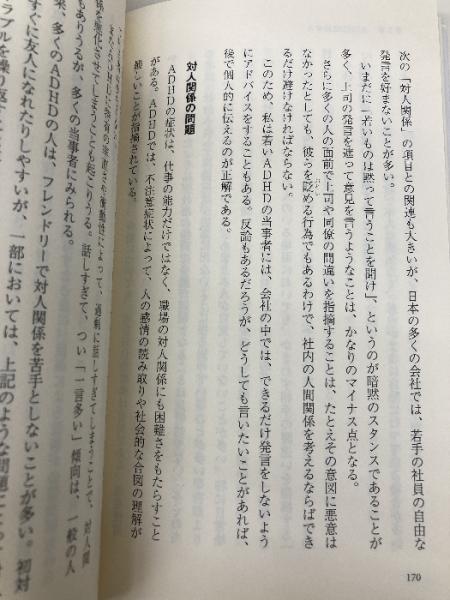 次の「対人関係」の項目との関連も大きいが、日本の多くの会社では、若手の社員の自由な
発言を好まないことが多い。
いまだに「若いものは黙って言うことを聞け」、というのが暗黙のスタンスであることが
多く、上司の発言を遮って意見を言うようなことは、かなりのマイナス点となる。
さらに多くの人の面前で上司や同僚の間違いを指摘することは、たとえその意図に悪意は
なかったとしても、彼らを貶める行為でもあるわけで、社内の人間関係を考えるならばでき
るだけ避けなければならない。
このため、私は若いADHDの当事者には、会社の中では、できるだけ発言をしないよう
にアドバイスをすることもある。反論もあるだろうが、どうしても言いたいことがあれば、
後で個人的に伝えるのが正解である。
対人関係の問題
ADHDの症状は、仕事の能力だけではなく、職場の対人関係にも困難さをもたらすこと
がある。ADHDでは、不注意症状によって、人の感情の読み取りや社会的な合図の理解が
難しいことが指摘されている。
衝動性によって、過剰に話しすぎてしまうことで、対人関
係を悪化させてしまうことも起こりうる。話しすぎて、つい「一言多い」傾向は、一般の人
もありうるが、多くの当事者にみられる。
来、多くのADHDの人は、フレンドリーで対人関係を苦手としないことが多い。初対
すぐに友人になれたりしやすいが、一部においては、上記のような問題
ラブルを繰り返す
170